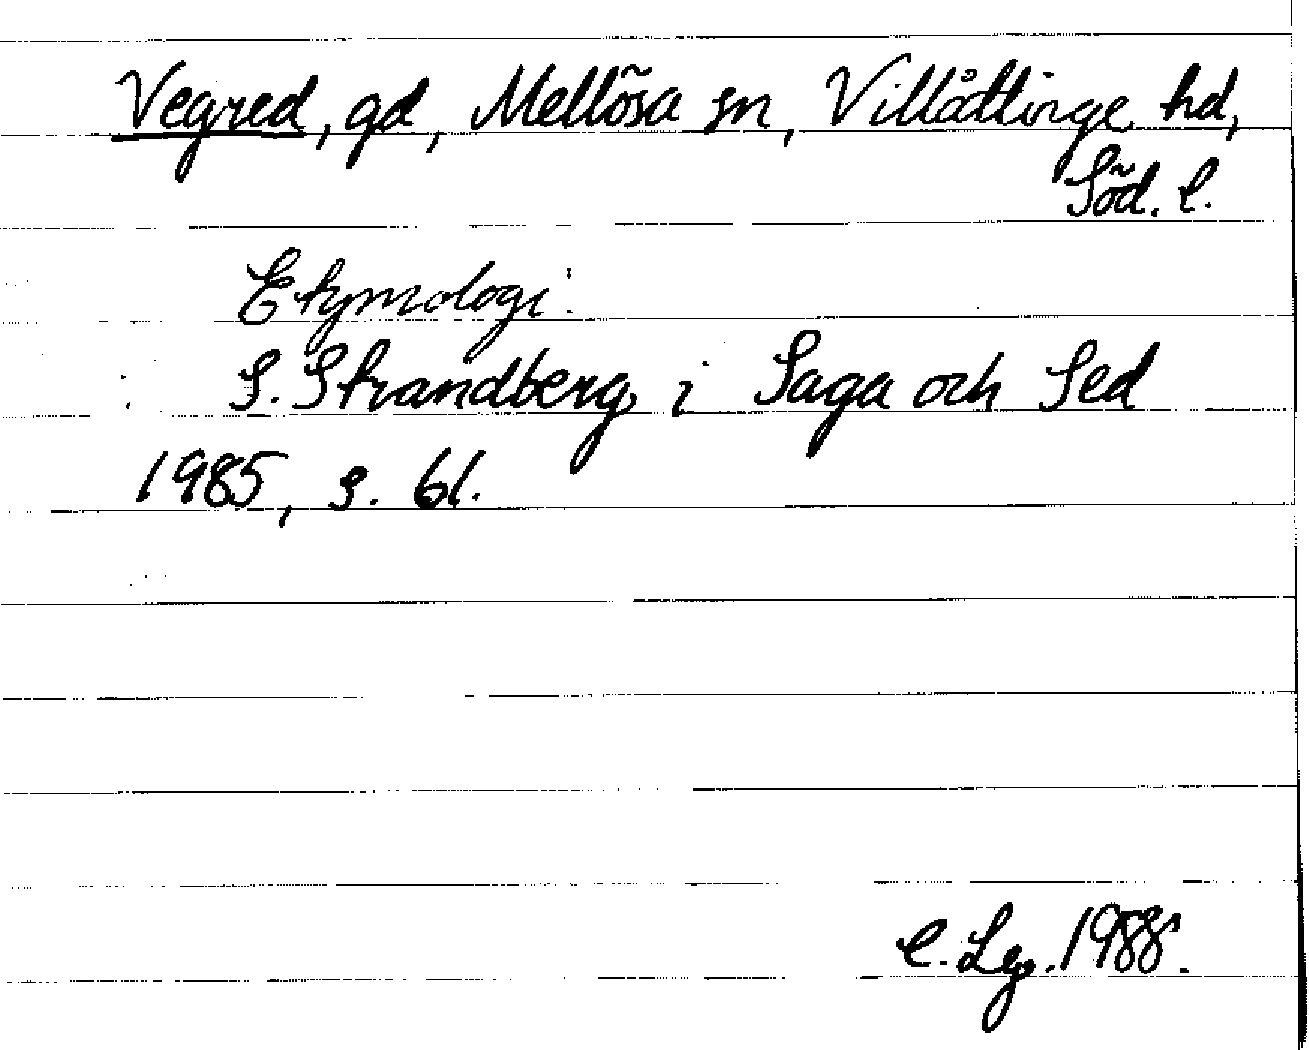 Vegred, gd, Mellösa sn, Villåttinge hd,
Söd. l.
Etymologi:
S. Strandberg i Saga och Sed
1985, s. 61.
C. Lg. 1988.